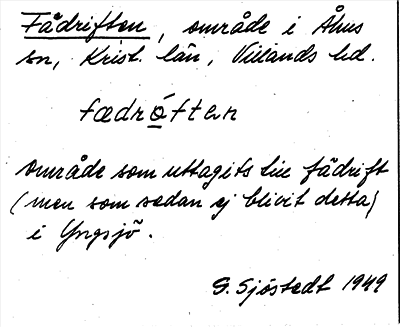 Fädriften, område i Åhus
sn, Krist. län, Villands hd.
fædróften
område som uttagits till fädrift
(men som sedan ej blivit detta)
i Yngsjö.
G. Sjöstedt 1949